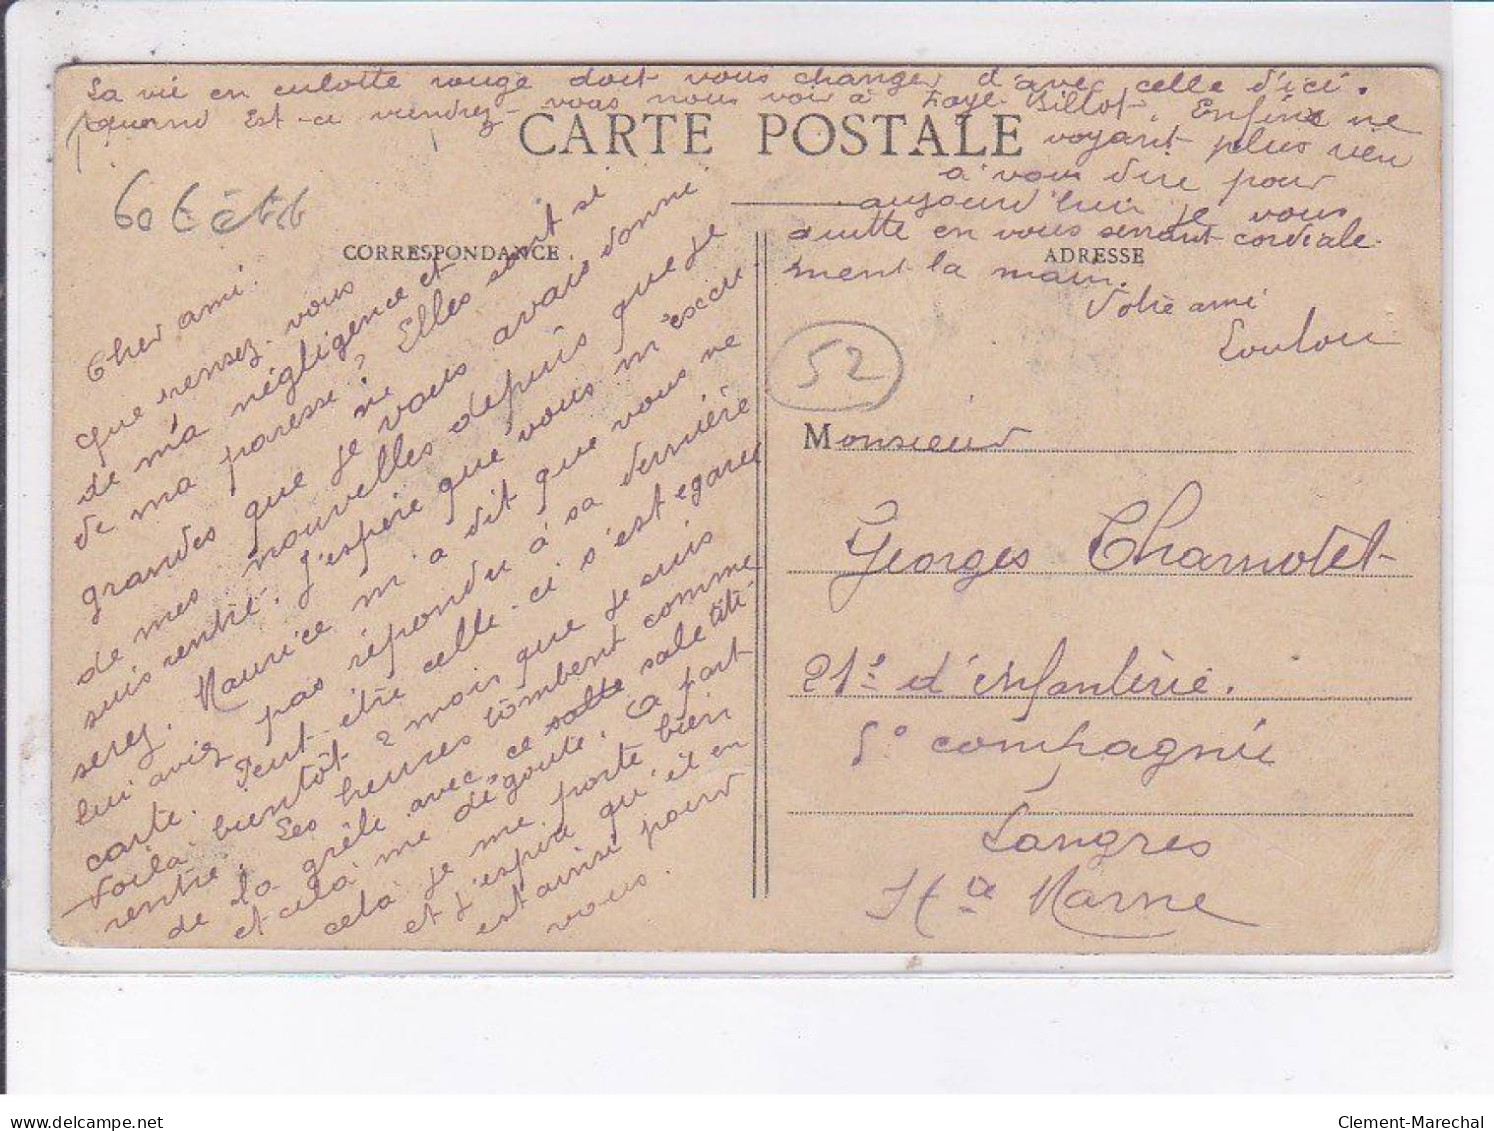 La vie en culotte rouge doit vous changer d'avec celle d'ici.
quand Est-ce viendrez-vous nous voir à Faye-Billot. Enfin ne
voyant plus rien
à vous dire pour
aujourd'hui je vous
quitte en vous serrant cordiale-
ment la main.
Votre ami
Loulou
CARTE POSTALE
CORRESPONDANCE
ADRESSE
60
52
Cher ami.
que pensez-vous
de m'a négligence et
de ma paresse? Elles sont si
grandes que je vous avais donné
de mes nouvelles depuis que je
suis rentré. J'espère que vous m'excu-
serez. Maurice m'a dit que vous ne
lui aviez pas répondu à sa dernière
carte. Peut-être celle-ci s'est egarée
Voilà bientôt 2 mois que je suis
rentré. Les heures tombent comme
de la grêle avec ce sale
et cela me dégoute. Ça part
cela je me porte bien
et j'espère qu'il en
est ainsi pour
vous.
Monsieur
Georges Chamotet
21e d'infanterie.
5e compagnie
Langres
Hte Marne
delcampe.net
Clement-Marechal